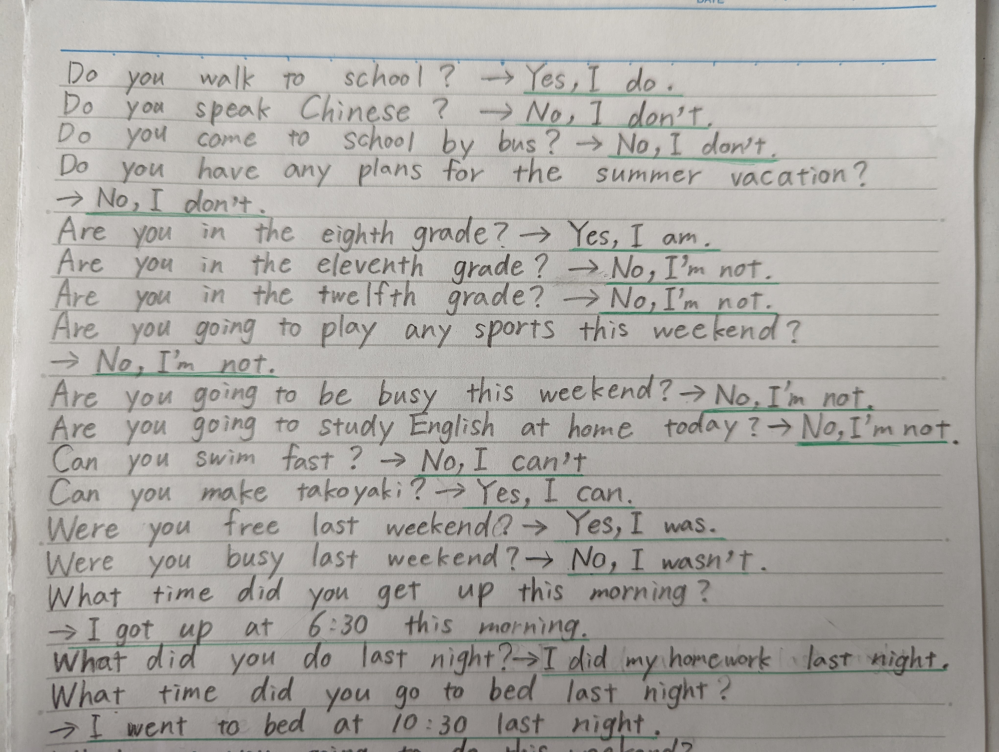 DATE
Do you walk to school? → Yes, I do.
Do you speak Chinese? → No, I don't.
Do you come to school by bus? → No, I don't.
Do you have any plans for the summer vacation?
→ No, I don't.
Are you in the eighth grade? → Yes, I am.
Are you in the eleventh grade? → No, I'm not.
Are you in the twelfth grade? → No, I'm not.
Are you going to play any sports this weekend?
→ No, I'm not.
Are you going to be busy this weekend? → No, I'm not.
Are you going to study English at home today? → No, I'm not.
Can you swim fast? → No, I can't
Can you make takoyaki? → Yes, I can.
Were you free last weekend? → Yes, I was.
Were you busy last weekend? → No, I wasn't.
What time did you get up this morning?
→ I got up at 6:30 this morning.
What did you do last night? → I did my homework last night.
What time did you go to bed last night?
→ I went to bed at 10:30 last night.
to do this weekend?